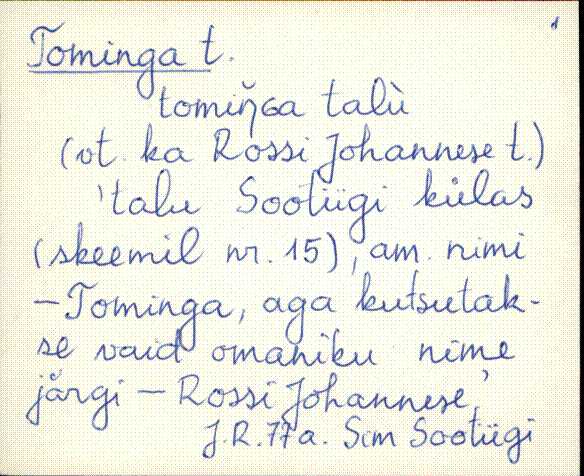 Tominga t.
tomiŋ̆ɢa talù
(vt. ka Rossi Johannese t.)
'talu Sootügi külas
(skeemil nr. 15), am. nimi
—Tominga, aga kutsutak-
se vaid omaniku nime
järgi — Rossi Johannese'
J.R. 77 a. Sim Sootügi